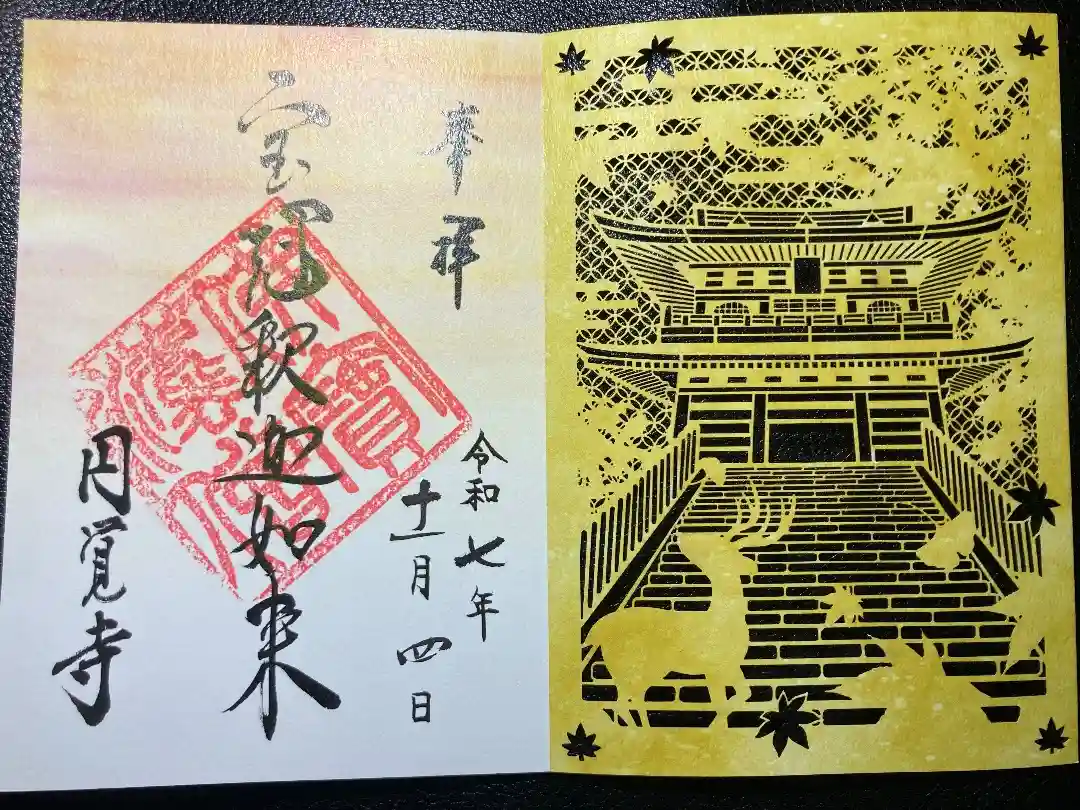 奉拝
令和七年
十一月四日
宝冠釈迦如来
円覚寺